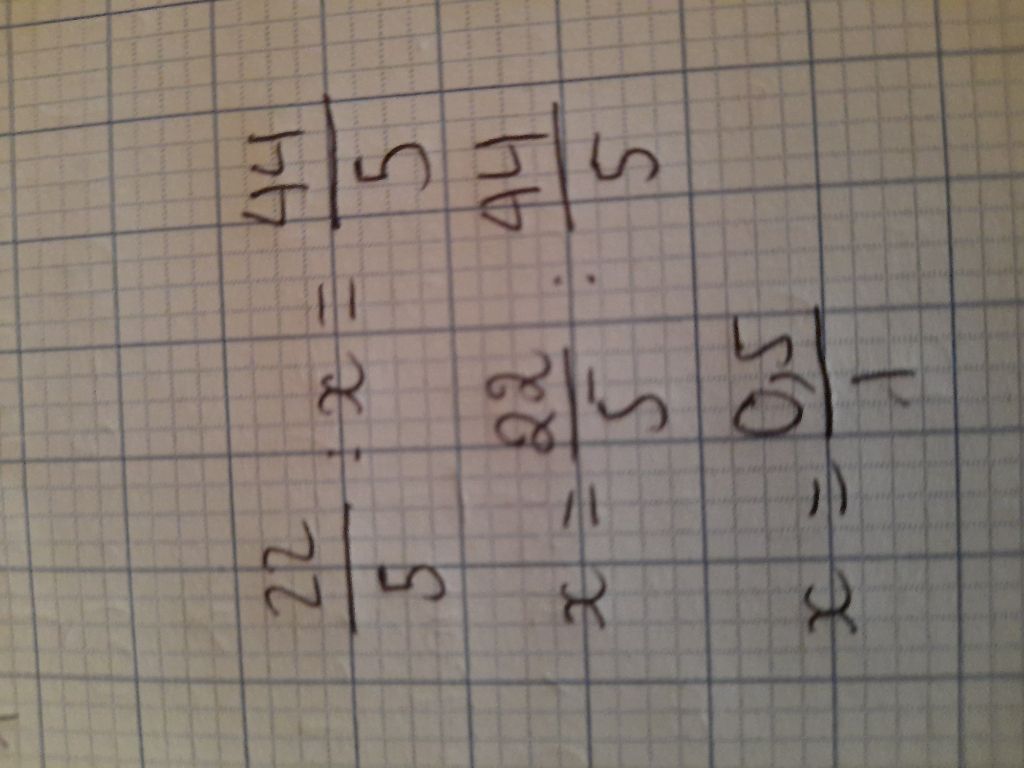 22/5 : x = 44/5
x = 22/5 : 44/5
x = 0,5/1